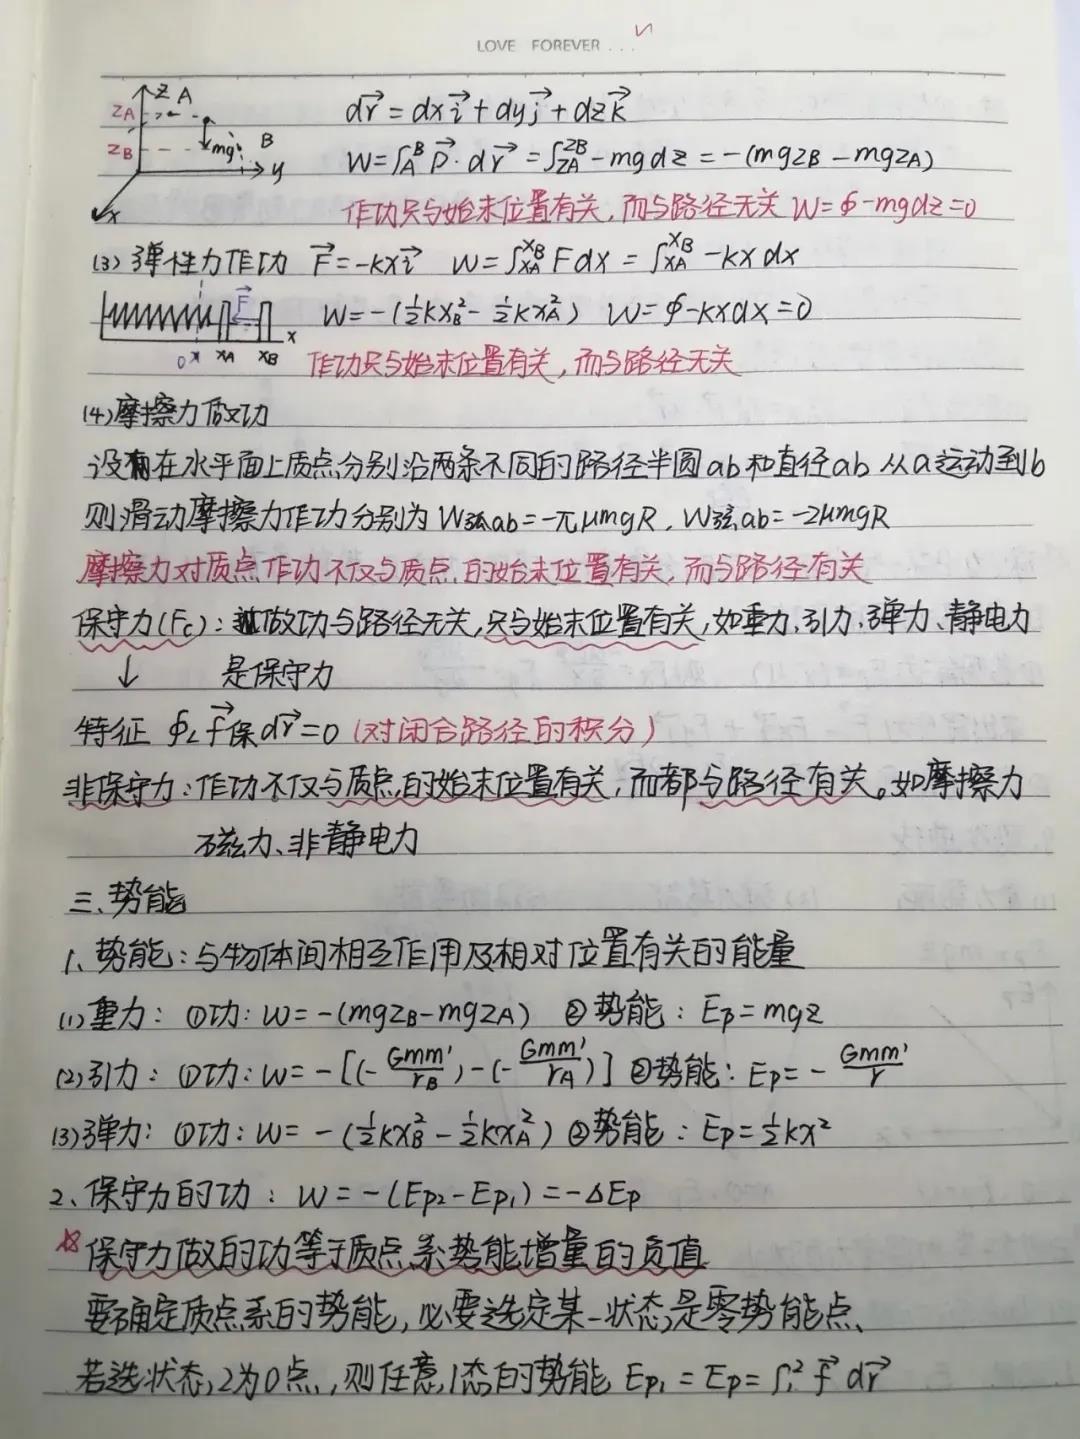 LOVE FOREVER ...
z A
z_A
z_B mg B
y
x
dr⃗ = dx i⃗ + dy j⃗ + dz k⃗
W=∫_A^B P⃗·dr⃗ = ∫_{zA}^{zB} -mgdz = -(mgz_B - mgz_A)
作功只与始末位置有关,而与路径无关 W=∮-mgdz=0
(3) 弹性力作功 F⃗=-kx i⃗ W=∫_{xA}^{xB} Fdx = ∫_{xA}^{xB} -kx dx
F⃗
x
0 x_A x_B
W=-(½kx_B²- ½kx_A²) W=∮-kxdx=0
作功只与始末位置有关,而与路径无关
(4)摩擦力做功
设在水平面上质点分别沿两条不同的路径半圆ab和直径ab从a运动到b
则滑动摩擦力作功分别为W弧ab=-πμmgR, W弦ab=-2μmgR
摩擦力对质点作功不仅与质点的始末位置有关,而与路径有关
保守力(Fc):做功与路径无关,只与始末位置有关,如重力、引力、弹力、静电力
↓ 是保守力
特征 ∮_L f⃗保 dr⃗=0 (对闭合路径的积分)
非保守力:作功不仅与质点的始末位置有关,而都与路径有关。如摩擦力
磁力、非静电力
三、势能
1、势能:与物体间相互作用及相对位置有关的能量
(1)重力: ①功:W=-(mgz_B-mgz_A) ②势能:Ep=mgz
(2)引力: ①功:W=-[(-Gmm'/r_B)-(-Gmm'/r_A)] ②势能:Ep=-Gmm'/r
(3)弹力: ①功:W=-(½kx_B²-½kx_A²) ②势能:Ep=½kx²
2、保守力的功: W=-(Ep₂-Ep₁)=-ΔEp
☆保守力做的功等于质点系势能增量的负值
要确定质点系的势能,必要选定某一状态是零势能点、
若选状态2为0点,则任意1态的势能 Ep₁=Ep=∫₁² f⃗ dr⃗